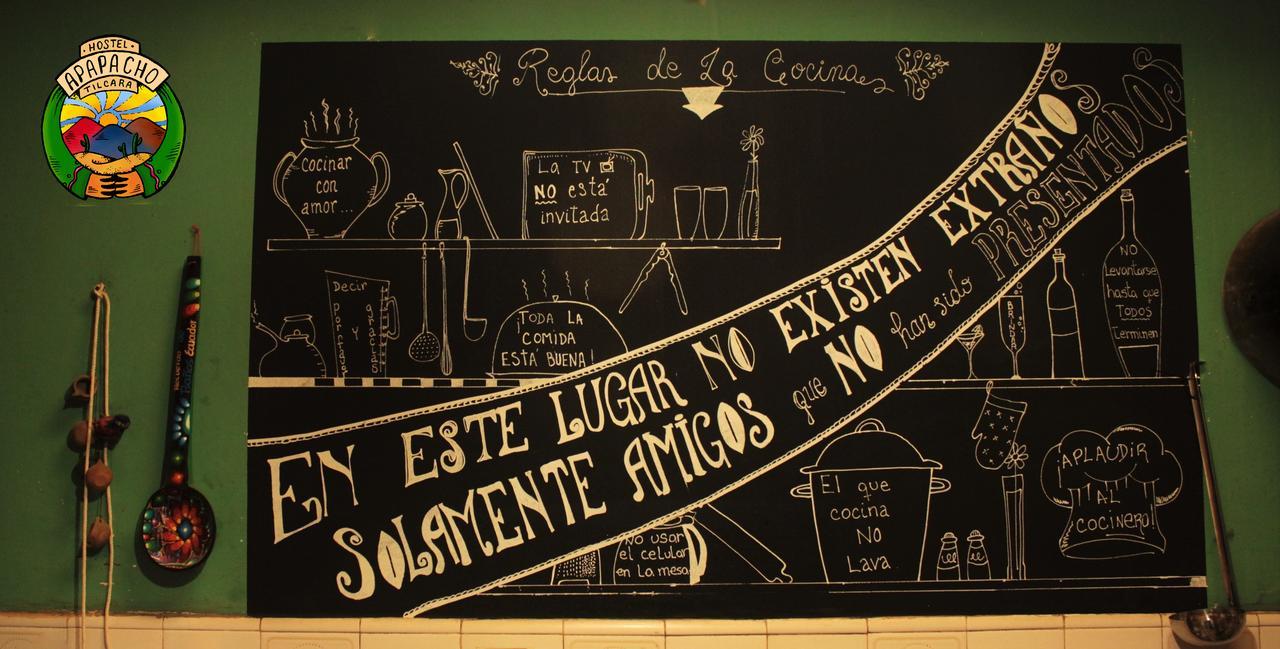 HOSTEL
APAPACHO
TILCARA
Reglas de La Cocina
cocinar
con
amor...
La TV
NO está
invitada
Decir
porfas y gracias
¡TODA LA
COMIDA
ESTÁ BUENA!
EN ESTE LUGAR NO EXISTEN EXTRAÑOS
SOLAMENTE AMIGOS que NO han sido PRESENTADOS
BRINDAR
NO
Levantarse
hasta que
TODOS
Terminen
NO usar
el celular
en La mesa
El que
cocina
NO
Lava
¡APLAUDIR
AL
COCINERO!
Ecuador